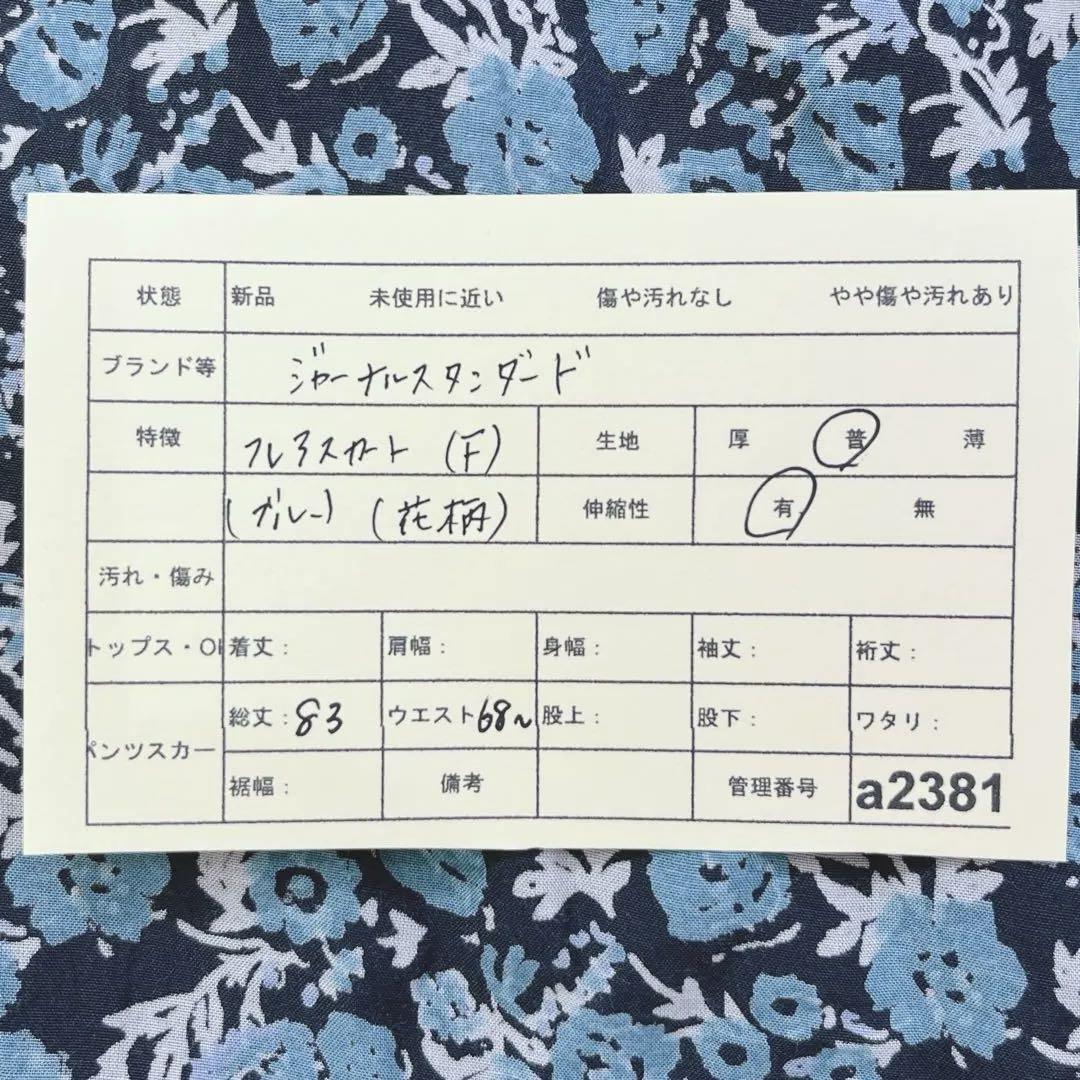 状態 新品 未使用に近い 傷や汚れなし やや傷や汚れあり
ブランド等 ジャーナルスタンダード
特徴 フレアスカート (F) 生地 厚 普 薄
(ブルー) (花柄) 伸縮性 有 無
汚れ・傷み
トップス・OP 着丈: 肩幅: 身幅: 袖丈: 裄丈:
パンツスカー 総丈:83 ウエスト68〜 股上: 股下: ワタリ:
裾幅: 備考 管理番号 a2381